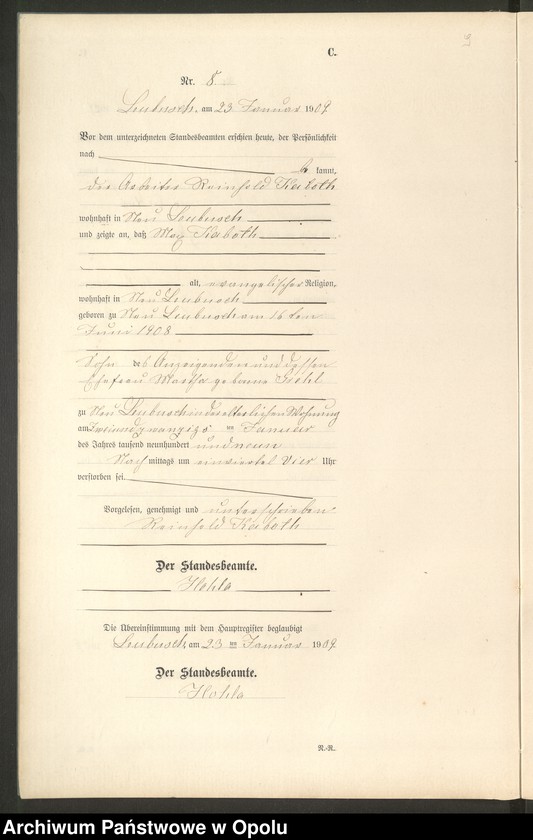 C.
3
Nr. 8.
Leubusch, am 23 Januar 1909.
Vor dem unterzeichneten Standesbeamten erschien heute, der Persönlichkeit
nach be kannt,
der Arbeiter Reinhold Kaboth
wohnhaft in Neu Leubusch
und zeigte an, daß Max Kaboth
alt, evangelischer Religion,
wohnhaft in Neu Leubusch
geboren zu Neu Leubusch am 16 ten
Juni 1908
Sohn des Anzeigenden und dessen
Ehefrau Martha geborene
zu Neu Leubusch in der elterlichen Wohnung
am Zweiundzwanzigs ten Januar
des Jahres tausend neunhundert und neun
Nach mittags um einviertel Vier Uhr
verstorben sei.
Vorgelesen, genehmigt und unterschrieben
Reinhold Kaboth
Der Standesbeamte.
Hohla
Die Übereinstimmung mit dem Hauptregister beglaubigt
Leubusch, am 23 ten Januar 1909.
Der Standesbeamte.
Hohla
R.-R.
Archiwum Państwowe w Opolu